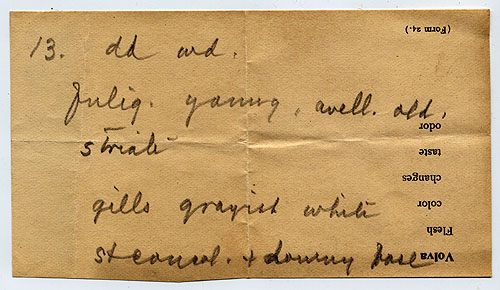 13. dd wd.
fulig. young, avell. old,
striate
gills grayish white
st concol. + downy base
(Form 24.)
odor
taste
changes
color
Flesh
Volva